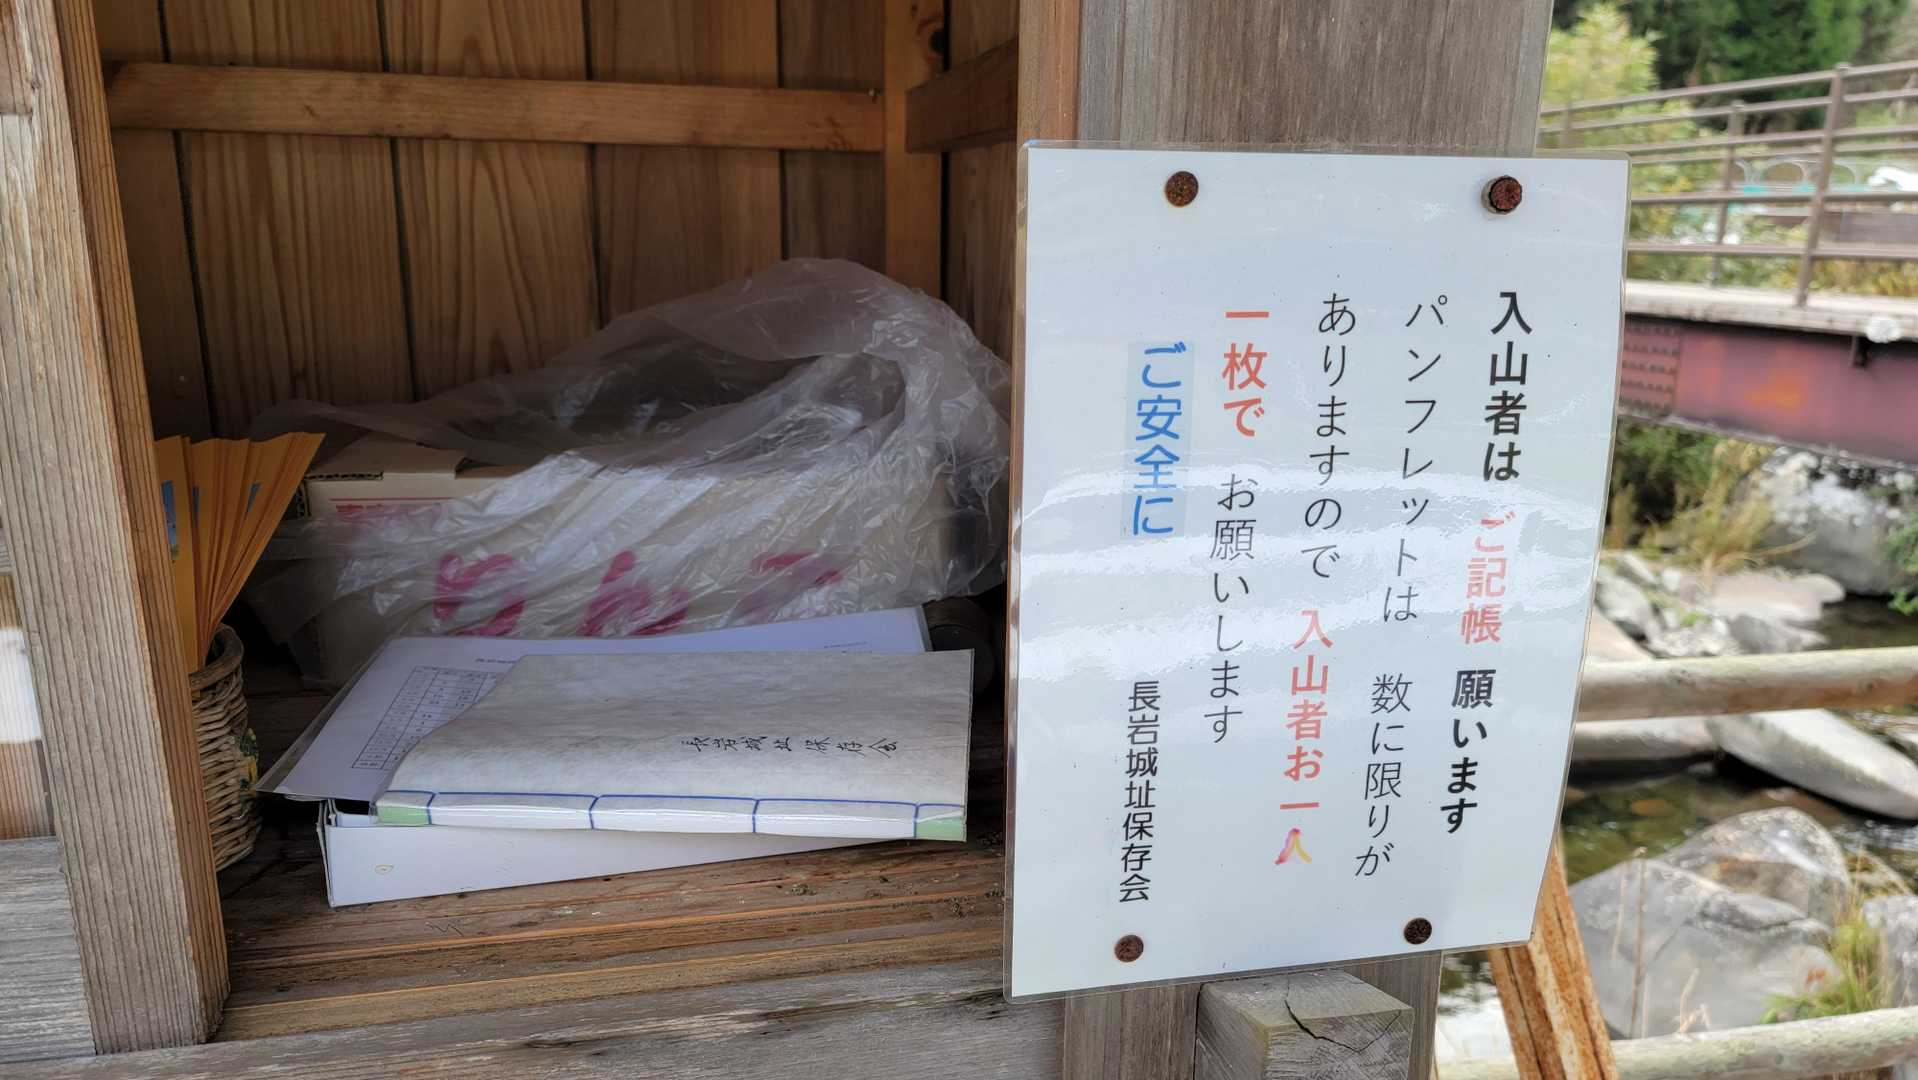 入山者は ご記帳 願います
パンフレットは 数に限りが
ありますので 入山者お一人
一枚で お願いします
ご安全に
長岩城址保存会
長岩城址保存会
りんご